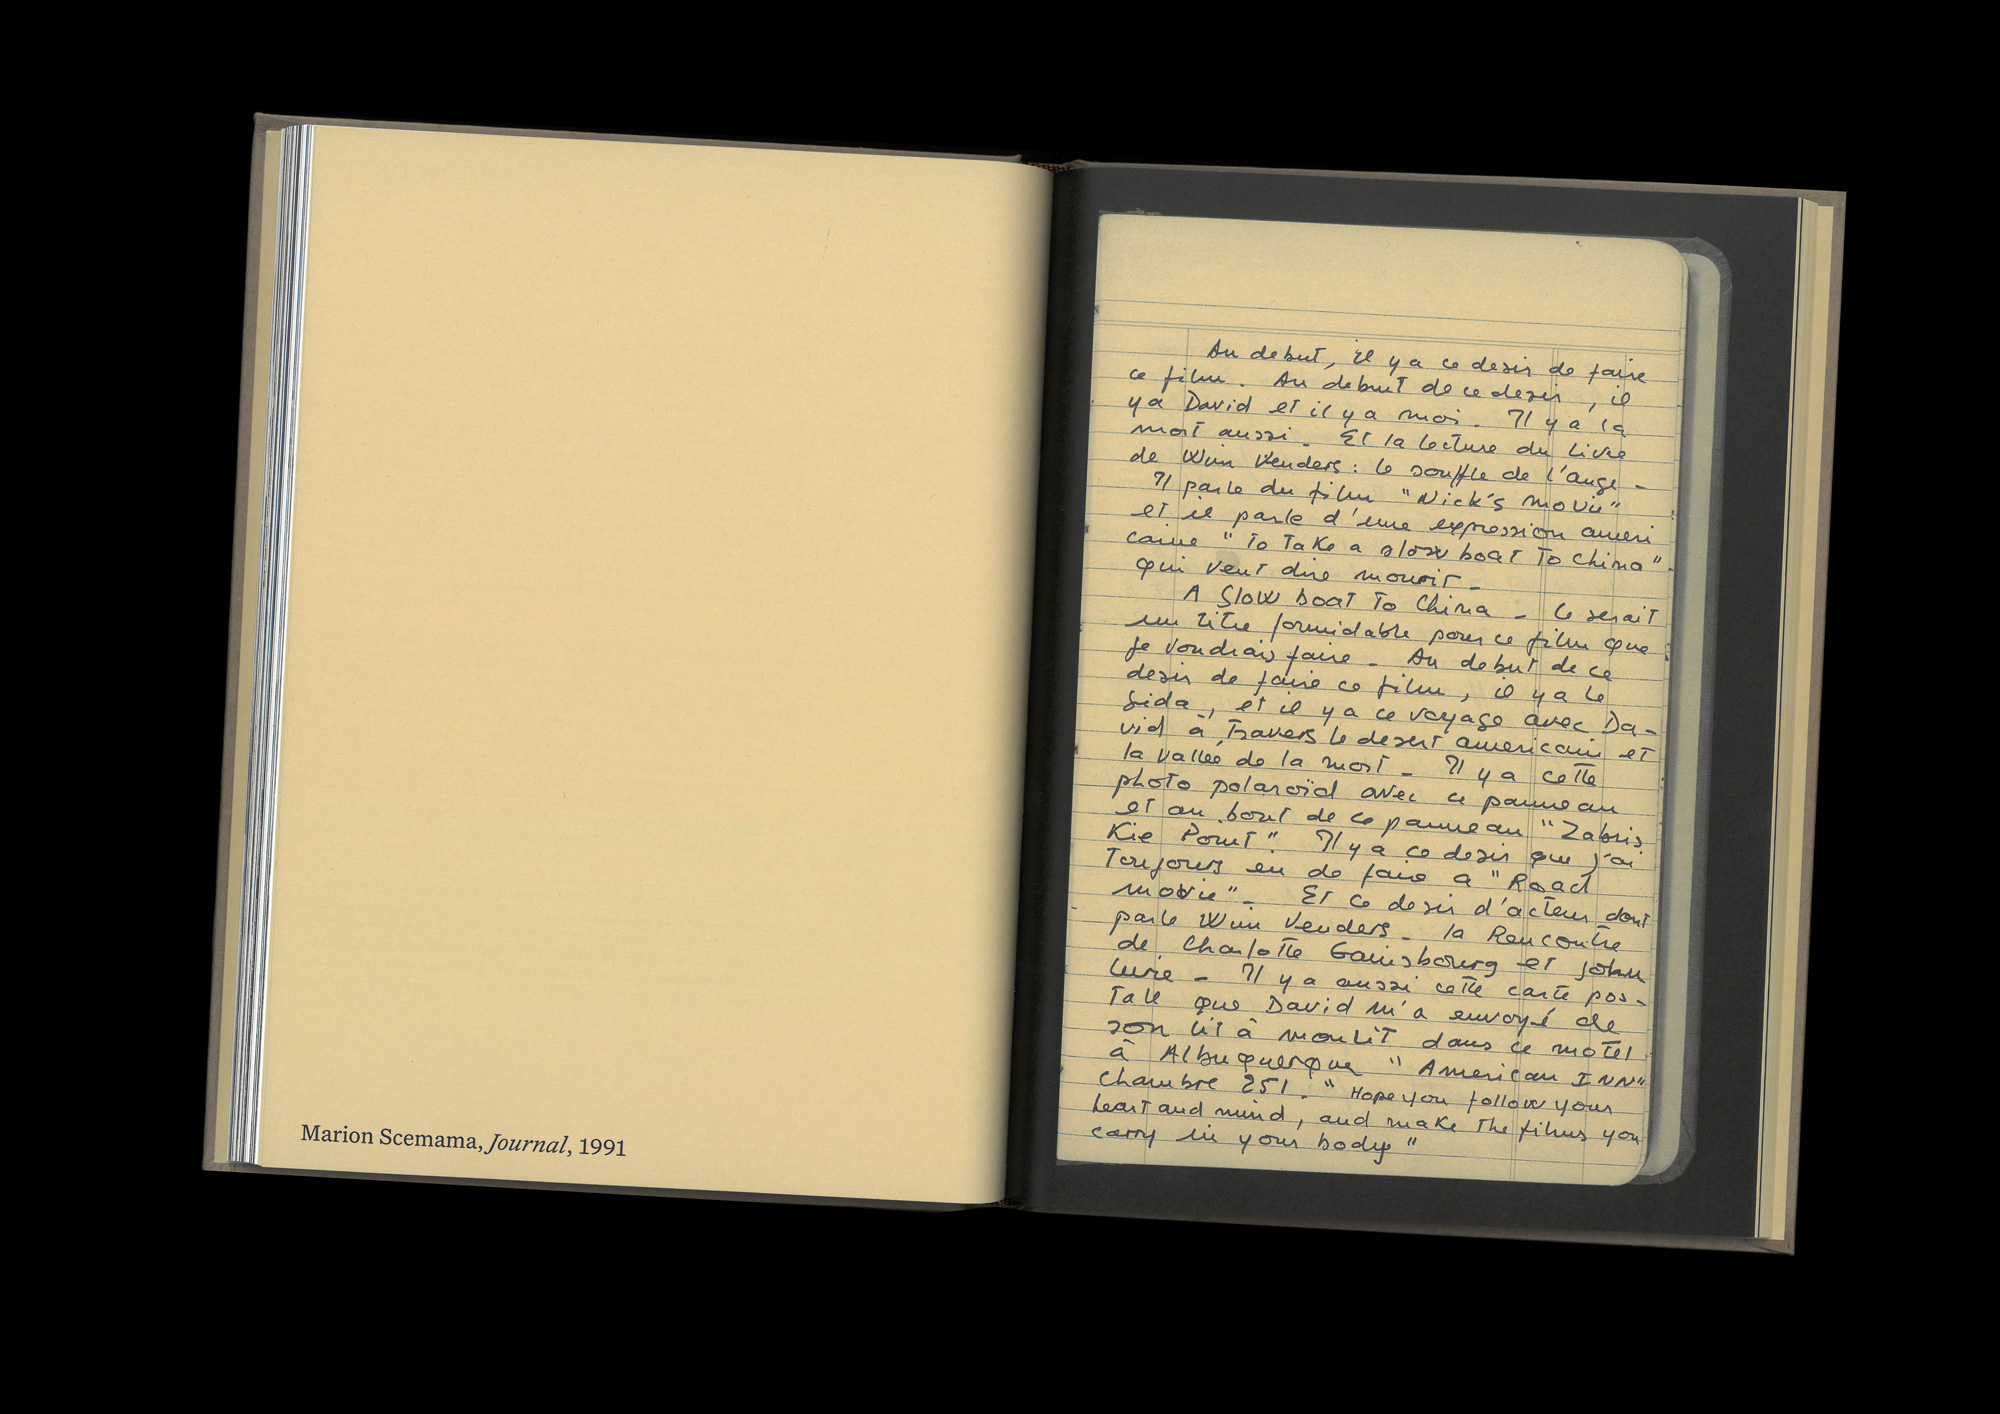 Marion Scemama, Journal, 1991
Au debut, il y a ce desir de faire
ce film. Au debut de ce desir, il
y a David et il y a moi. Il y a la
mort aussi. Et la lecture du livre
de Wim Wenders : le souffle de l'ange -
Il parle du film "Nick's movie"
et il parle d'une expression ameri
caine "To Take a slow boat To China".
qui veut dire mourir -
A Slow boat To China - Ce serait
un titre formidable pour ce film que
je voudrais faire - Au debut de ce
desir de faire ce film, il y a le
Sida, et il y a ce voyage avec Da-
vid à Travers le desert americain et
la vallée de la mort - Il y a cette
photo polaroïd avec ce panneau
et au bout de ce panneau "Zabris
Kie Point". Il y a ce desir que j'ai
Toujours eu de faire a "Road
movie" - Et ce desir d'acteur dont
parle Wim Venders - la Rencontre
de Charlotte Gainsbourg et John
Lurie - Il y a aussi cette carte pos-
tale que David m'a envoyé de
son lit à moulit dans ce motel
à Albuquerque "American INN"
Chambre 251 - "Hope you follow your
heart and mind, and make The films you
carry in your body"